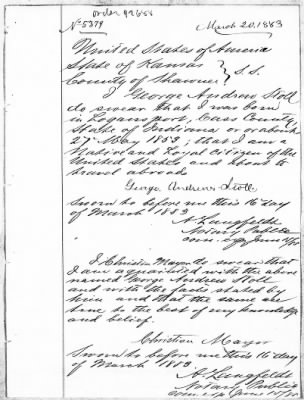 order 99658
No 5379
March 20, 1883
United States of America
State of Kansas
County of Shawnee } S.S.
I George Andrew Stoll
do swear that I was born
in Logansport, Cass County
State of Indiana on or about
27th May 1853; that I am a
Native and Loyal citizen of the
United States and about to
travel abroad
George Andrew Stoll
Sworn to before me this 16 day
of March 1883
A. Langfeldt
Notary Public
com. exp June
I Christian Mayer do swear that
I am acquainted with the above
named George Andrew Stoll
and with the facts stated by
him and that the same are
true to the best of my knowledge
and belief.
Christian Mayer
Sworn to before me this 16 day
of March 1883.
A. Langfeldt
Notary Public
com. exp June